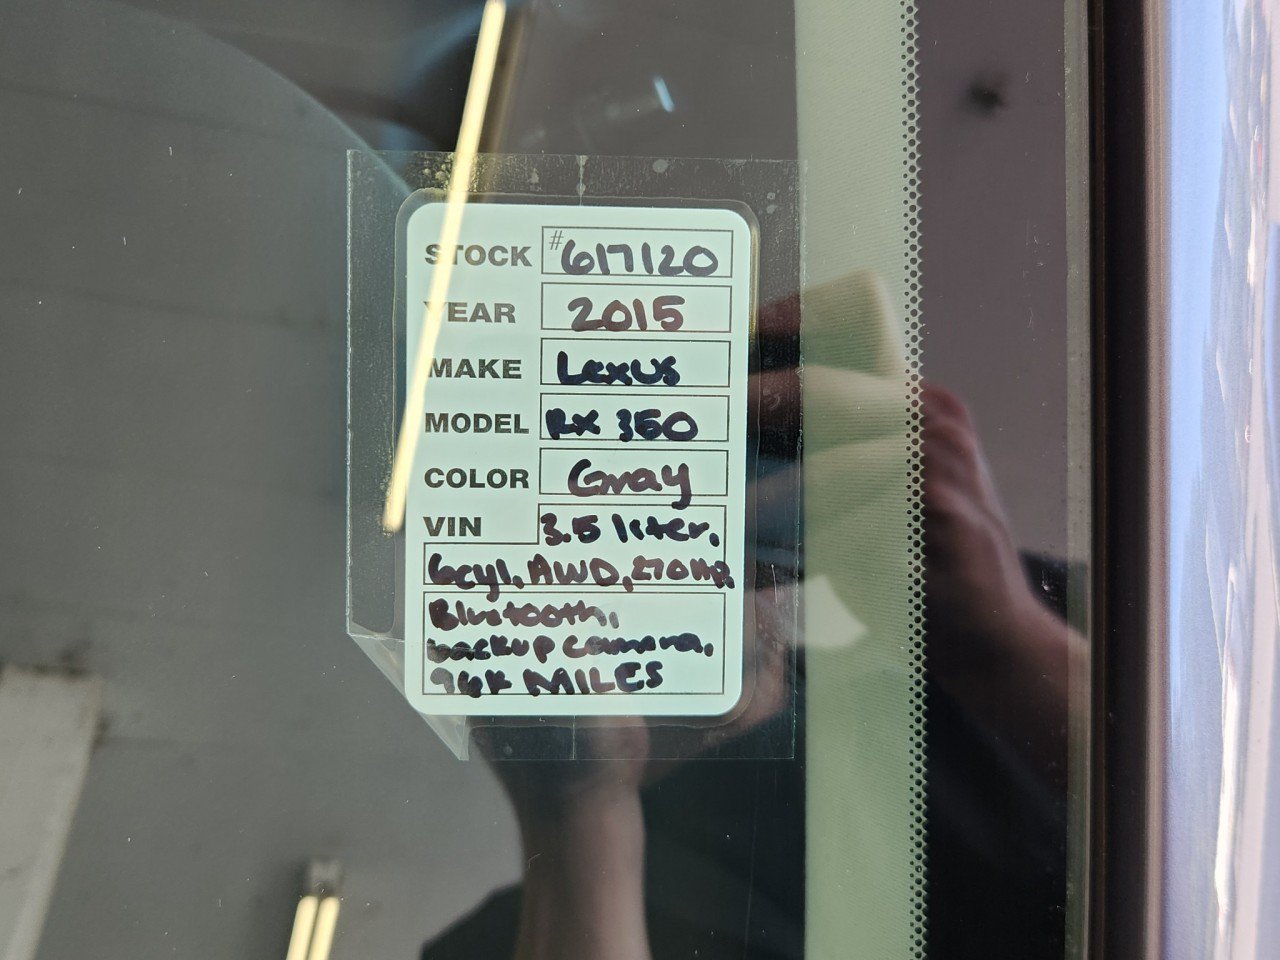 STOCK #617120
YEAR 2015
MAKE Lexus
MODEL RX 350
COLOR Gray
VIN 3.5 liter,
6cyl, AWD, 270HP,
Bluetooth,
backup camera,
94K MILES